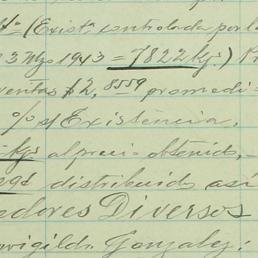 (Existª controlada por la
3 Mgo 1943 = 7822 kg.)
ventas $2,8559 promedi
% s/ Existencia,
kgs al precio obtenido,
distribuido así
adores Diversos
vigildo Gonzalez: